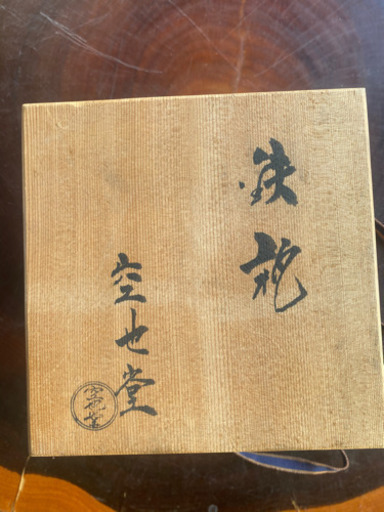 鉄瓶
空也堂
空也堂